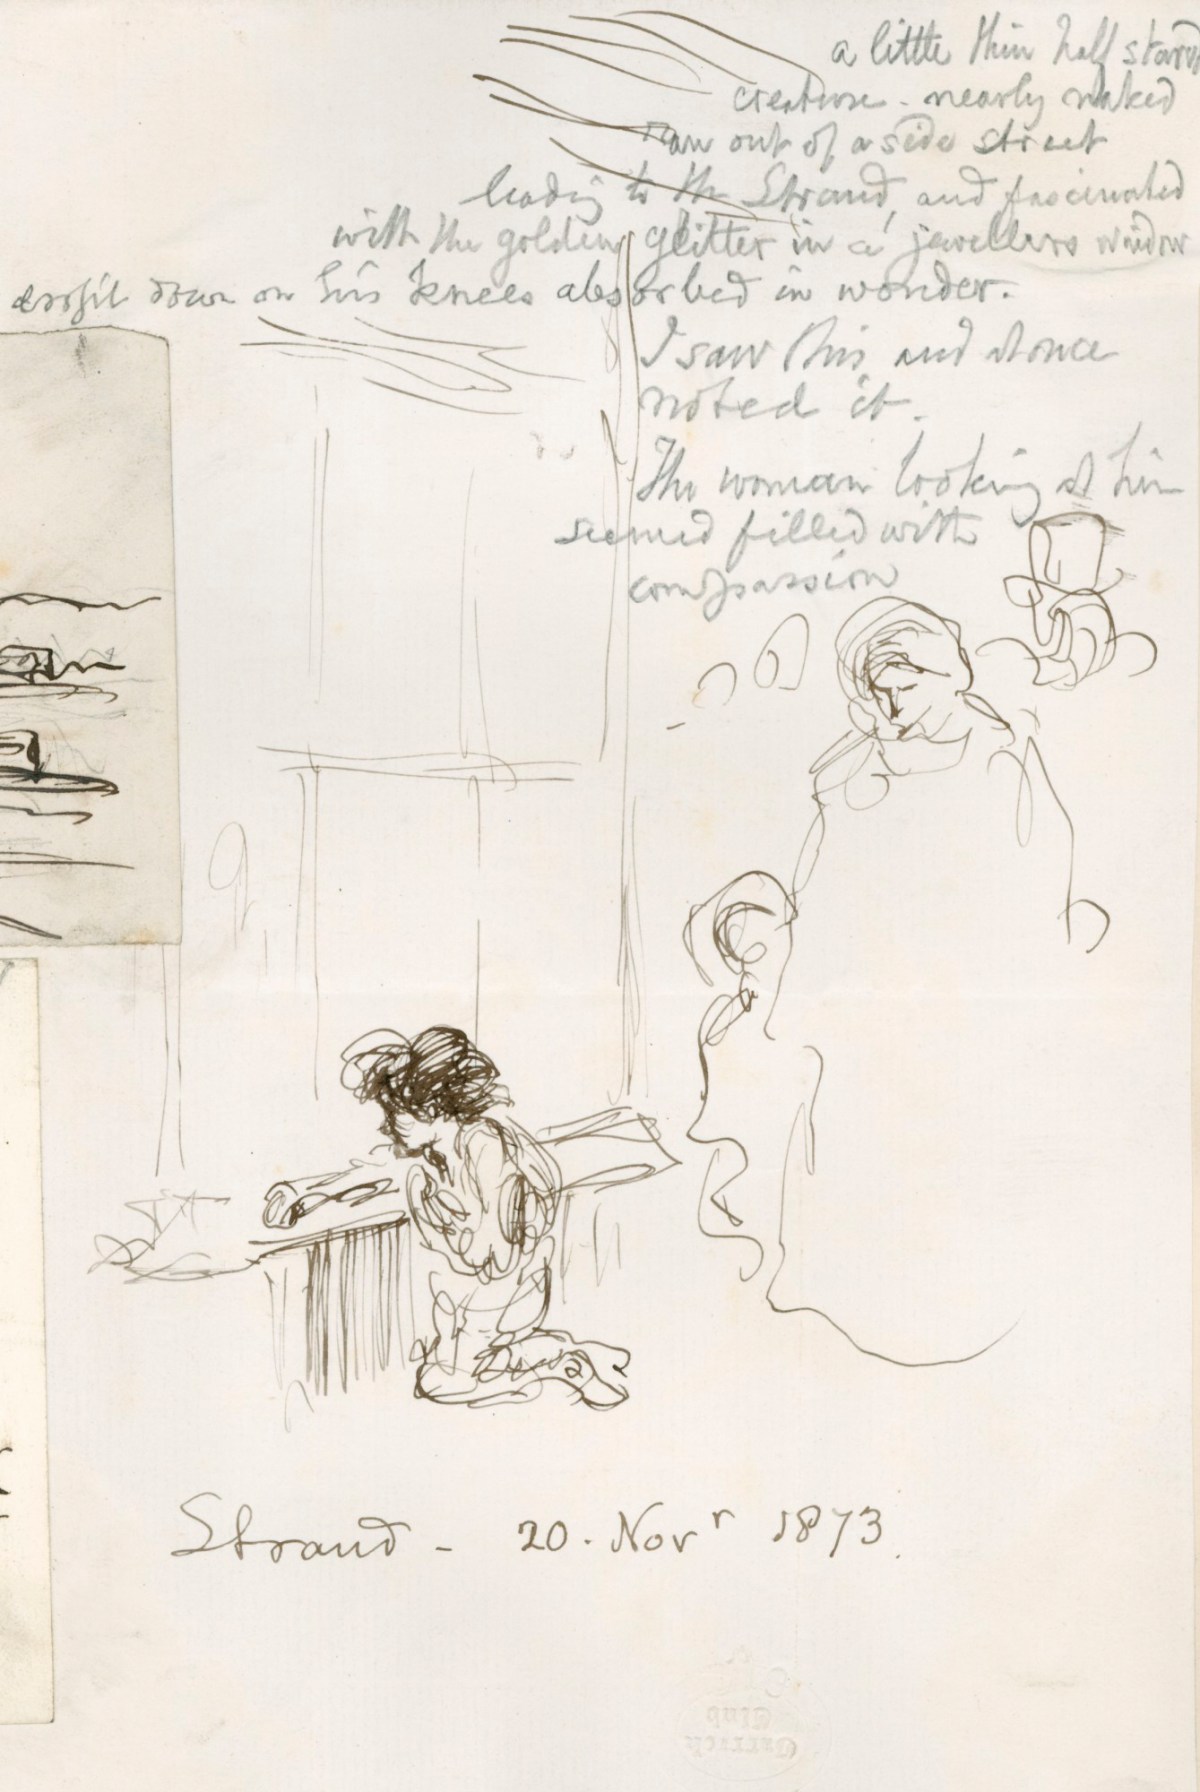 a little thin half starv
creature - nearly naked
ran out of a side street
leading to the Strand, and fascinated
with the golden glitter in a jewellers window
dropit down on his knees absorbed in wonder.
I saw this and at once
noted it.
The woman looking at him
seemed filled with
compassion
Strand - 20. Novr 1873.
Garrick
Club